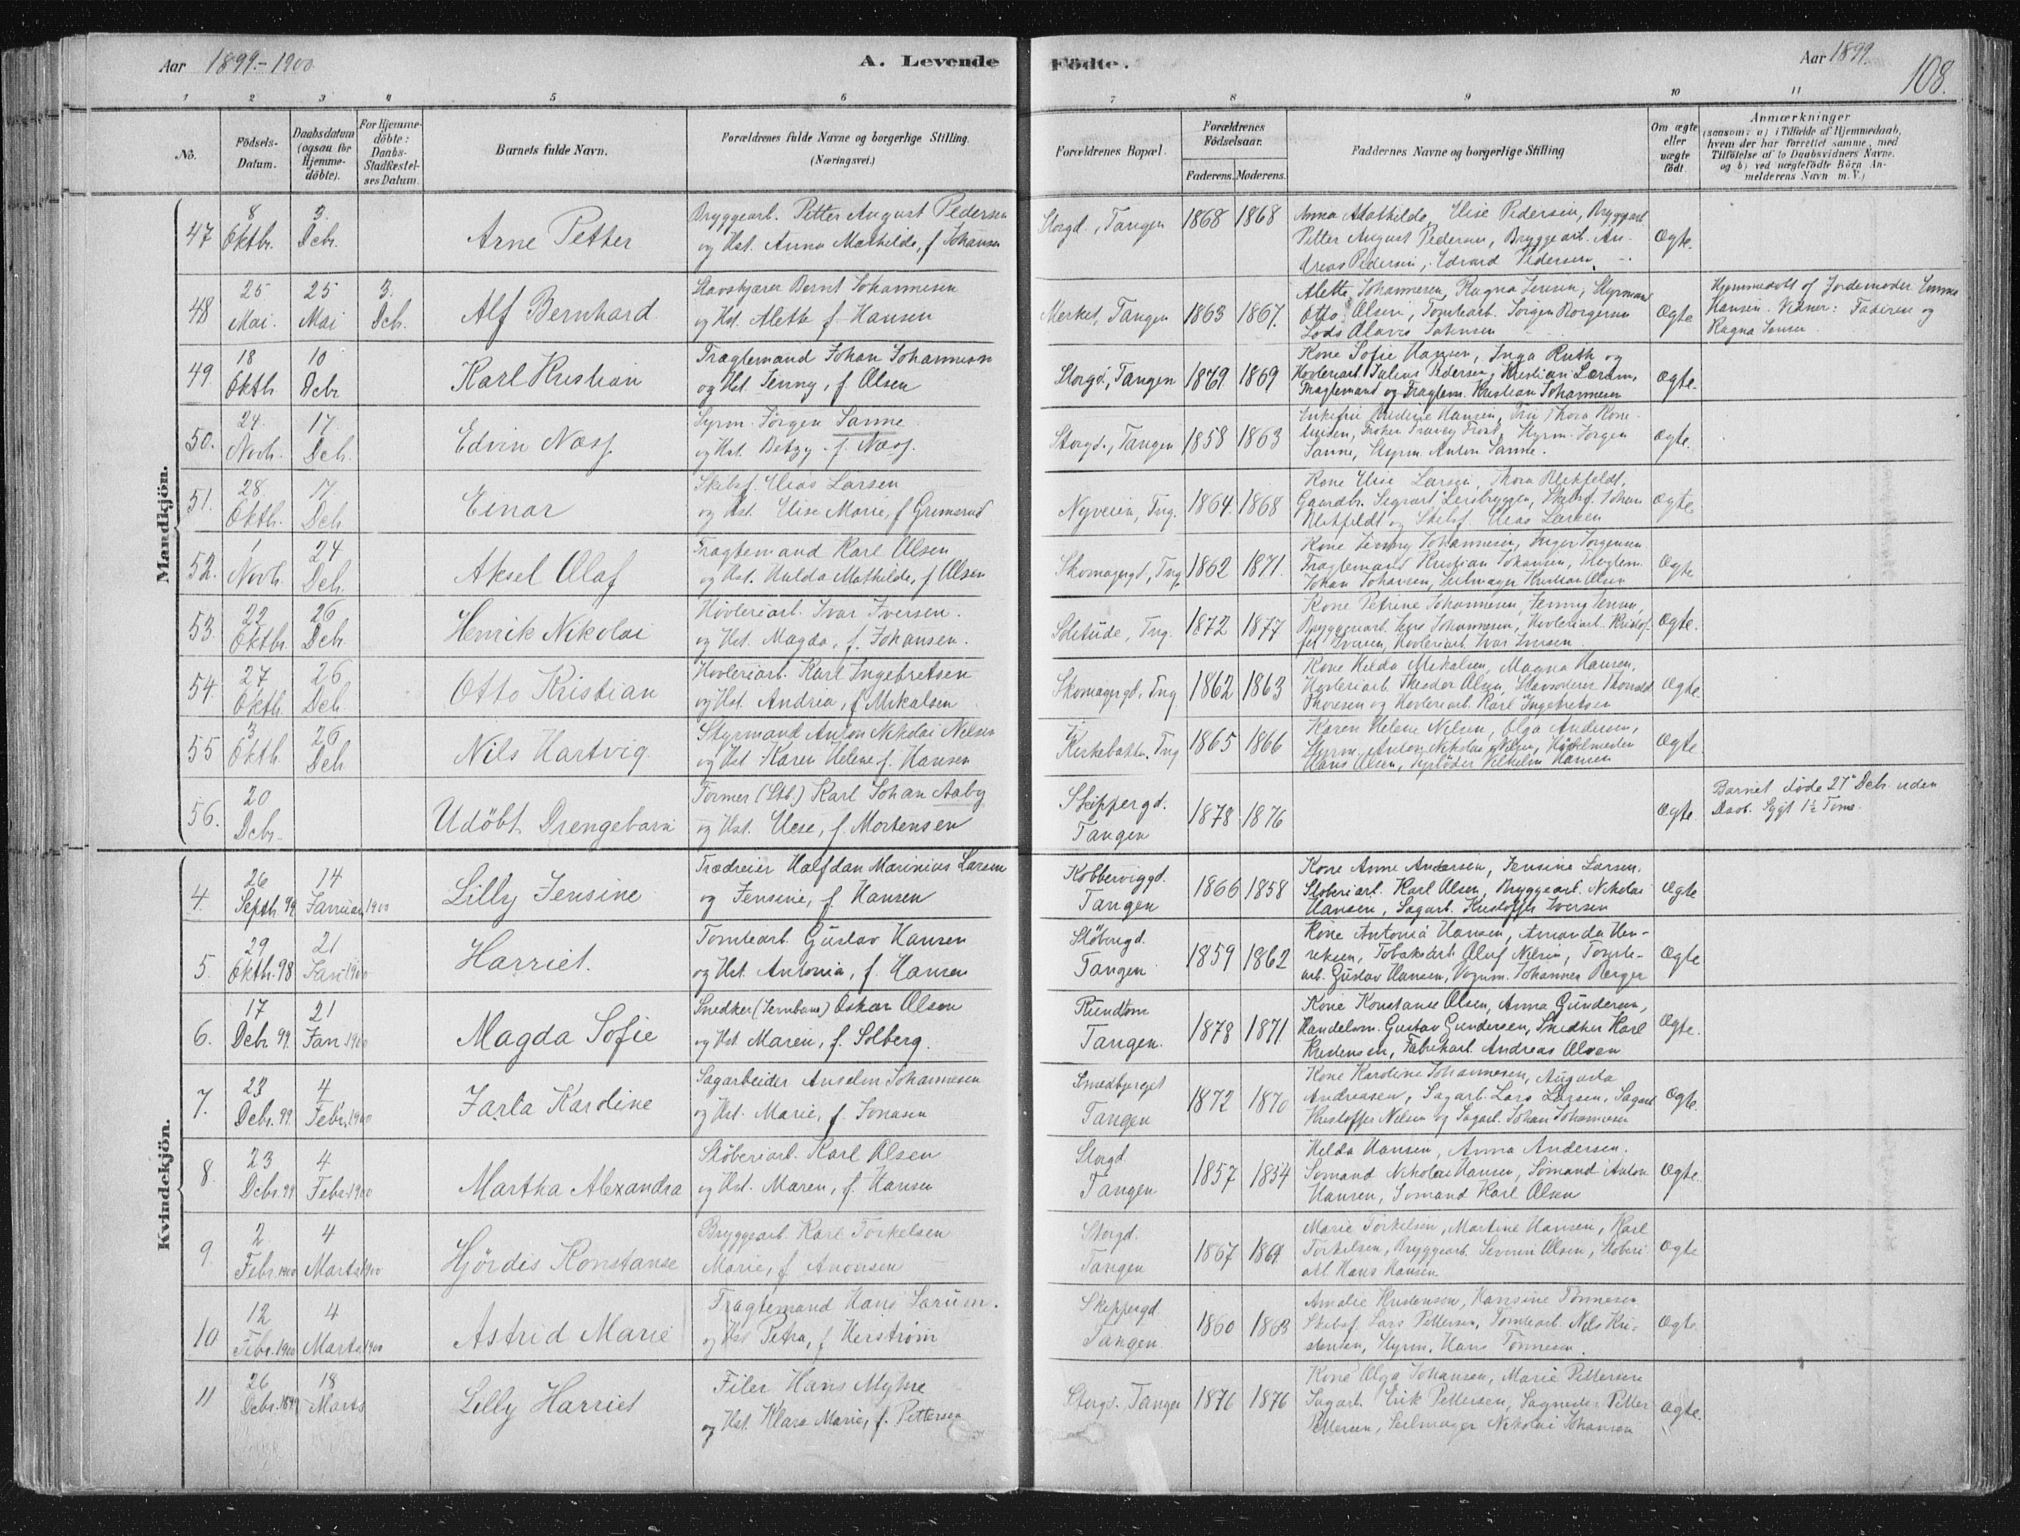 Aar 1899.-1900
A. Levende
Födte.
Aar 1899.
108.
1 2 3 4 5 6 7 8 9 10 11
No.
Födsels-Datum.
Daabsdatum (ogsaa for Hjemme-döbte).
For Hjemme-döbte: Daabs-Stadfæstel-ses Datum.
Barnets fulde Navn.
Forældrenes fulde Navne og borgerlige Stilling. (Næringsvei.)
Forældrenes Bopæl.
Forældrenes Födselsaar.
Faderens. Moderens.
Faddernes Navne og borgerlige Stilling
Om ægte eller uægte födt.
Anmærkninger
(saasom: a) i Tilfælde af Hjemmedaab, hvem der har forrettet samme, med Tilföielse af to Daabsvidners Navne, og b) ved uægtefödte Börn An-melderens Navn m. V.)
Mandkjön.
47 8 Oktbr. 3. Dcbr. Arne Petter
Bryggearb. Petter August Pedersen
og Hst. Anna Mathilde, f. Johansen
Storgd., Tangen 1868 1868
Anna Mathilde, Elise Pedersen, Bryggearb.
Petter August Pedersen, Bryggearb. An-
dreas Pedersen, Edvard Pedersen
Ægte.
48 25 Mai. 25 Mai 3. Dcb. Alf Bernhard
Bernt Johannesen
og Hst. Alette f. Hansen
Merket, Tangen 1863 1867.
Alette Johannesen, Ragna Jensen, Styrmand
Otto Olsen, Tomtearb. Jörgen Borgersen
Lods Olavis Johnsen
Ægte
Hjemmedöbt af Jordemoder Emma
Hansen. Vidner: Faderen og
Ragna Jensen
49. 18 Oktb. 10 Dcbr Karl Kristian
Fragtemand Johan Johannesen
og Hst Jenny, f. Olsen
Storgd., Tangen 1869 1869
Kone Sofie Hansen, Inga Ruth og
Hövleriarb. Julius Pedersen, Kristian Larsen,
Fragtemand og Fragtem. Kristian Johannesen
Ægte.
50. 24. Novb. 17. Dcb. Edvin Næss.
Styrm. Jörgen Sanne
og Hst. Betzy f. Næss.
Storgd., Tangen 1858 1863
Sanne, Styrm. Anton Sanne.
Ægte.
51. 28. Oktb. 17 Dcb Einar
Skibsf. Elias Larsen
og Hst. Elise Marie, f Grimsrud
Nyveien, Tng. 1864. 1868
Kone Elise Larsen, Thora Blikfeldt,
Gaardbr. Sigvart Leirbryggen, Skibsf. Johan
Blikfeldt og Skibsf. Elias Larsen
Ægte
52. 1 Novb. 24 Dcb. Aksel Olaf
Fragtemand Karl Olsen
og Hst. Hulda Mathilde, f Olsen
Skomagergd., Tng. 1862 1871.
Kone Jenny Johannesen, Inger Jörgensen
Fragtemand Kristian Johansen, Fragtem.
Johan Johansen, Seilmager Kristian Olsen
Ægte
53. 22 Oktbr. 26 Dcb. Henrik Nikolai
Hövleriarb. Ivar Iversen.
og Hst. Magda, f. Johansen.
Solitude, Tng. 1872 1877
Kone Petrine Johannesen, Jenny Jensen,
Bryggeriarb. Lars Johannesen, Hövleriarb. Kristof-
fer Iversen, Hövleriarb. Ivar Iversen
Ægte.
54. 27 Oktb. 26 Dcb Otto Kristian
Hövleriarb. Karl Ingebretsen
og Hst. Andrea, f. Mikalsen
Skomagergd., Tng 1862 1863
Kone Hilda Mikalsen, Magna Hansen,
Hövleriarb. Theodor Olsen, Thorvald
Thoresen og Hövleriarb. Karl Ingebretsen
Ægte
55 3 Oktb. 26 Dcb. Nils Hartvig.
Styrmand Anton Nikolai Nilsen
og Hst Karen Helene f. Hansen
Kirkebakken. Tng 1865 1866
Karen Helene Nilsen, Olga Andersen,
Styrm. Anton Nikolai Nilsen,
Hans Olsen, Vilhelm Hansen
Ægte
56. 20 Dcbr. Udöbt Drengebarn
Former (Stb.) Karl Johan Aaby
og Hst. Elise, f. Mortensen
Skippergd. Tangen 1878 1876
Ægte
Barnet döde 21 Dcbr. uden
Daab. 1½ Time.
Kvindekjön.
4. 26 Septb. 99 14 Januar 1900 Lilly Jensine
Trædreier Halfdan Marinius Larsen
og Jensine, f. Hansen
Kobberviggd. Tangen 1866 1858
Kone Anne Andersen, Jensine Larsen.
Stöberiarb. Karl Olsen, Bryggearb. Nikolai
Hansen, Sagarb. Kristoffer Iversen
Ægte
5. 29 Oktb. 98 21 Jan. 1900 Harriet.
Tomtearb. Gustav Hansen
og Hst. Antonia, f. Hansen
Stöberigd. Tangen 1859 1862
Kone Antonia Hansen, Amanda Hen-
riksen, Tobaksarb. Oluf Nilsen, Tomte-
arb. Gustav Hansen, Vognm. Johannes Berger
Ægte
6. 17 Dcbr. 99. 21 Jan. 1900 Magda Sofie
Snedker (Jernbane) Oskar Olsen
og Hst Maren, f. Solberg.
Rundtom Tangen. 1878 1871
Kone Konstanse Olsen, Anna Gundersen,
Handelsm. Gustav Gundersen, Snedker Karl
Kristensen, Fabrikarb. Andreas Olsen
Ægte.
7. 23 Dcbr. 99. 4 Febr. 1900 Jarla Karoline
Sagarbeider Anselm Johannesen
og Hst. Marie, f. Jonasen
Smedbjerget Tangen 1872 1870
Kone Karoline Johannesen, Augusta
Andreasen, Sagarb. Lars Larsen, Sagarb
Kristoffer Nilsen og Sagarb. Johan Johannesen
Ægte
8. 23 Dcbr. 99 4 Febr. 1900 Martha Alexandra
Stöberiarb. Karl Olsen
og Hst. Maren, f. Hansen
Storgd. Tangen 1857 1854
Hilda Hansen, Anna Andersen.
Sömand Nikolai Hansen, Sömand Anton
Hansen, Sömand Karl Olsen
Ægte.
9. 2 Febr. 1900 4 Marts 1900 Hjördis Konstanse
Bryggearb. Karl Torkelsen
Marie, f.
Storgd. Tangen 1867 1864
Marie Torkelsen, Martine Hansen, Karl
Torkelsen, Bryggearb. Severin Olsen, Stöberi-
arb. Hans Hansen
Ægte
10 12 Febr. 1900 4 Marts 1900 Astrid Marie
Fragtemand Hans Larum.
og Hst Petra, f. Herström
Skippergd. Tangen 1860 1863
Amalie Kristensen, Hansine Tönnesen
Skibsf. Lars Pettersen, Tomtearb. Nils Kri-
stensen, Styrm. Hans Tönnesen.
Ægte
11 26 Dcbr. 1899 18 Marts Lilly Harriet
Filer Hans Myhre
og Hst. Klara Marie, f. Pettersen
Storgd. Tangen 1876 1876
Kone Olga Johansen, Marie Pettersen
Sagarb. Erik Pettersen, Petter
Pettersen, Seilmager Nikolai Johansen
Ægte.